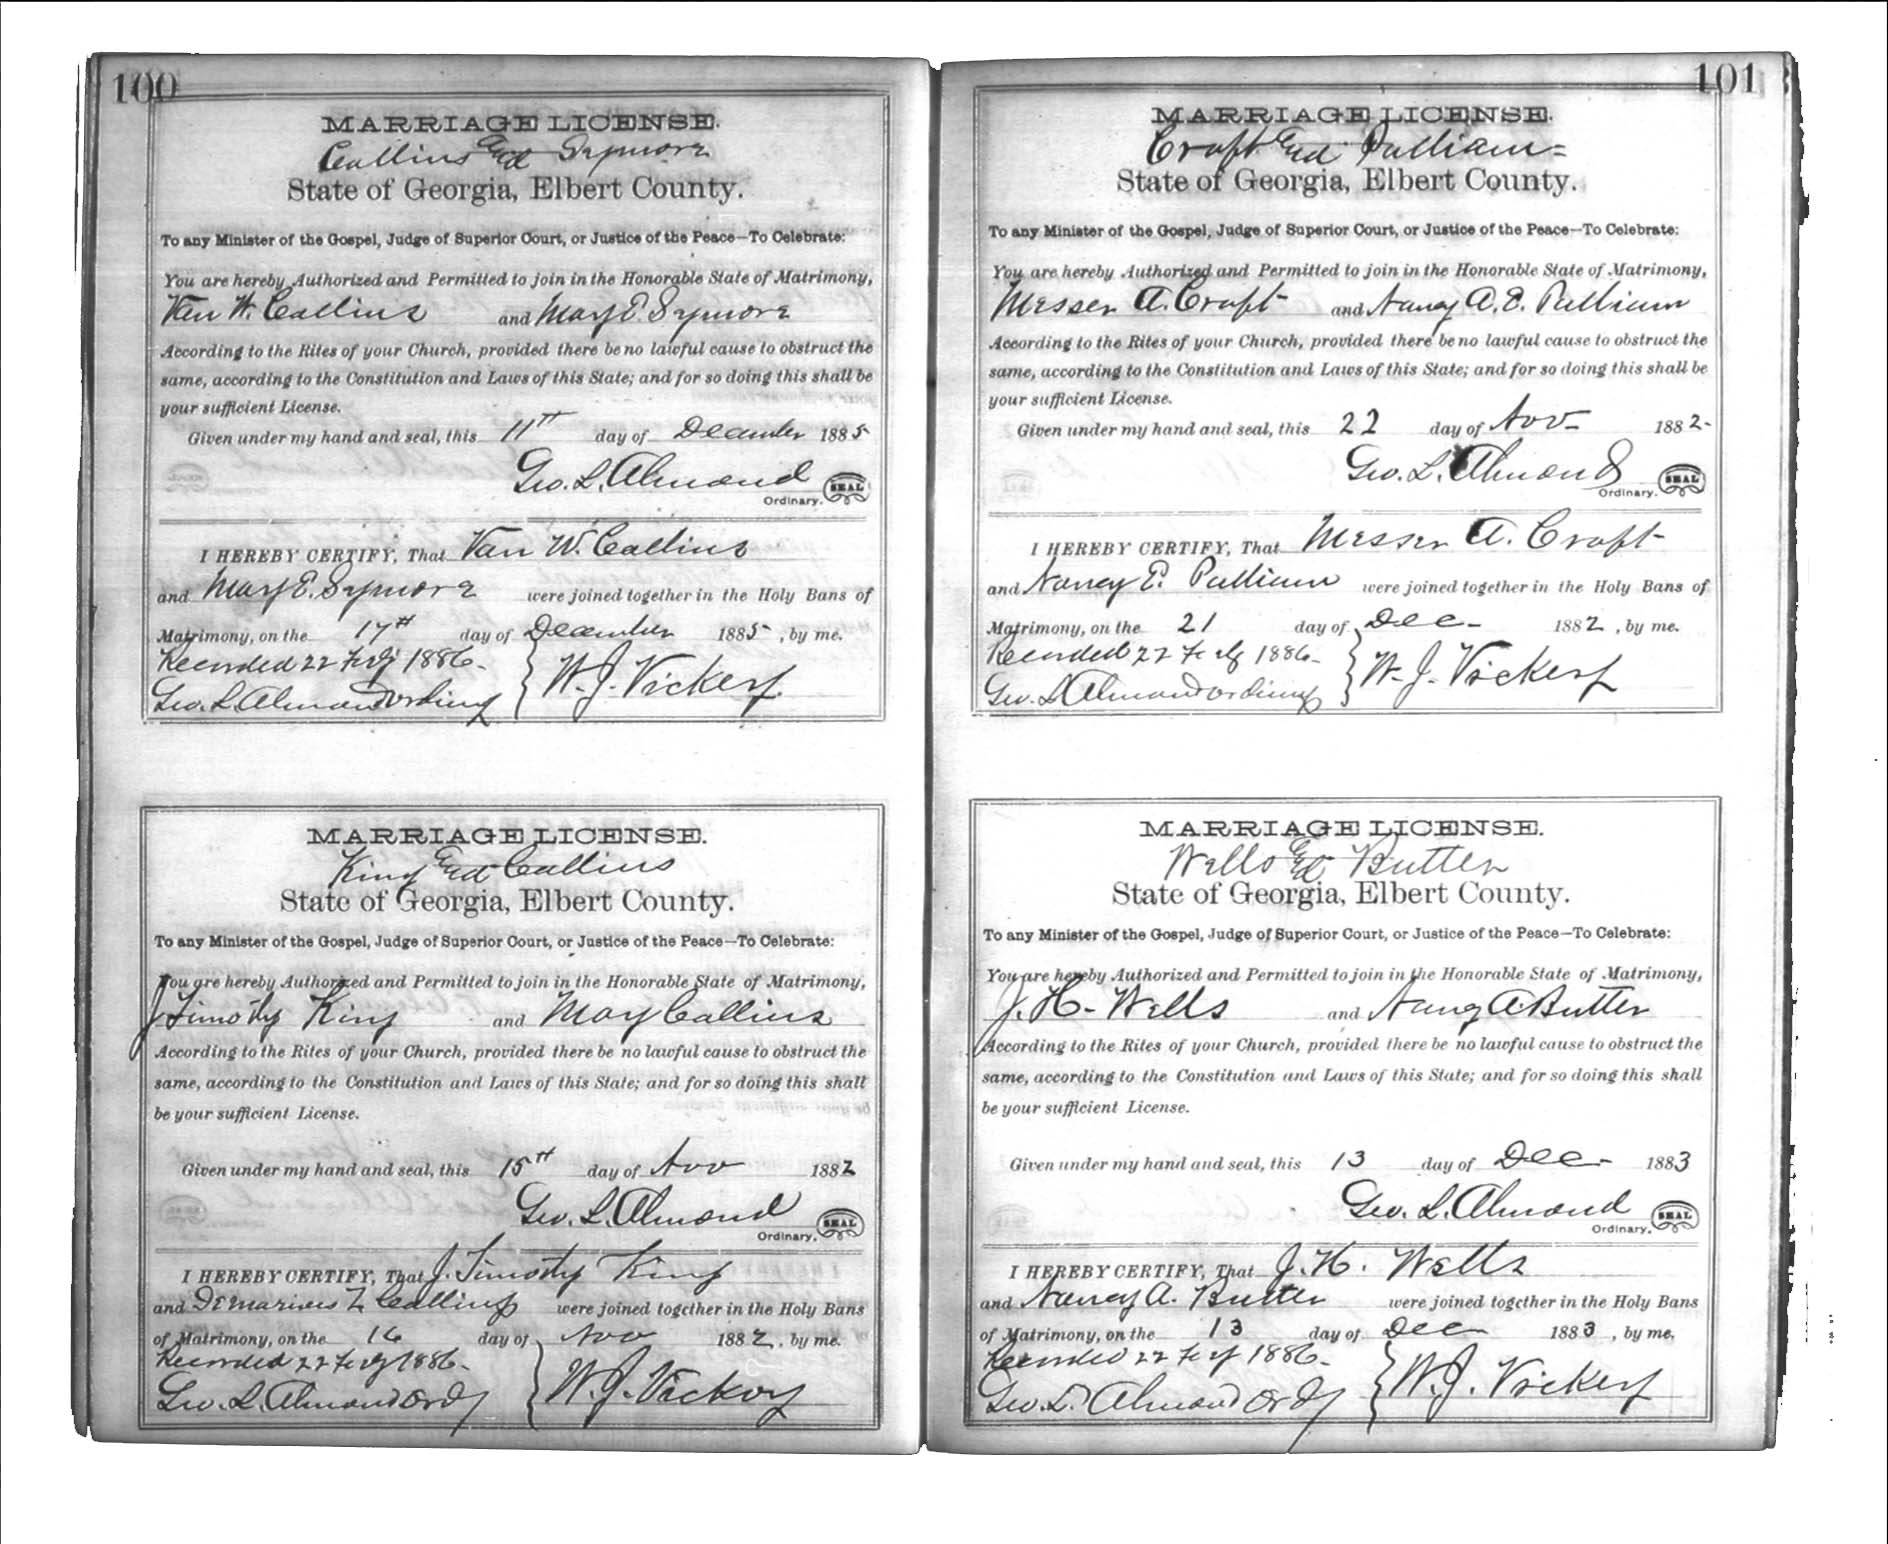 100
MARRIAGE LICENSE.
Collins Ed Symore
State of Georgia, Elbert County.
To any Minister of the Gospel, Judge of Superior Court, or Justice of the Peace—To Celebrate:
You are hereby Authorized and Permitted to join in the Honorable State of Matrimony,
Van W. Collins and Mary E. Symore
According to the Rites of your Church, provided there be no lawful cause to obstruct the
same, according to the Constitution and Laws of this State; and for so doing this shall be
your sufficient License.
Given under my hand and seal, this 11th day of December 1885
Geo. L. Almond
Ordinary. SEAL
I HEREBY CERTIFY, That Van W. Collins
and Mary E. Symore were joined together in the Holy Bans of
Matrimony, on the 17th day of December 1885, by me.
Recorded 22 Feby 1886.
Geo. L. Almond Ordinary W. J. Vickery
MARRIAGE LICENSE.
King Ed Collins
State of Georgia, Elbert County.
To any Minister of the Gospel, Judge of Superior Court, or Justice of the Peace—To Celebrate:
You are hereby Authorized and Permitted to join in the Honorable State of Matrimony,
J Timothy King and Mary Collins
According to the Rites of your Church, provided there be no lawful cause to obstruct the
same, according to the Constitution and Laws of this State; and for so doing this shall
be your sufficient License.
Given under my hand and seal, this 15th day of Nov 1882
Geo. L. Almond
Ordinary. SEAL
I HEREBY CERTIFY, That J. Timothy King
and Collins were joined together in the Holy Bans
of Matrimony, on the 16 day of Nov 1882, by me.
Recorded 22 Feby 1886.
Geo. L. Almond Ordy W. J. Vickery
101
MARRIAGE LICENSE.
Croft Ed Pulliam
State of Georgia, Elbert County.
To any Minister of the Gospel, Judge of Superior Court, or Justice of the Peace—To Celebrate:
You are hereby Authorized and Permitted to join in the Honorable State of Matrimony,
Messer A. Croft and Nancy A. E. Pulliam
According to the Rites of your Church, provided there be no lawful cause to obstruct the
same, according to the Constitution and Laws of this State; and for so doing this shall be
your sufficient License.
Given under my hand and seal, this 22 day of Nov 1882
Geo. L. Almond
Ordinary. SEAL
I HEREBY CERTIFY, That Messer A. Croft
and Nancy E. Pulliam were joined together in the Holy Bans of
Matrimony, on the 21 day of Dec 1882, by me.
Recorded 22 Feby 1886.
Geo. L Almond Ordinary W. J. Vickery
MARRIAGE LICENSE.
Wells Ed Butter
State of Georgia, Elbert County.
To any Minister of the Gospel, Judge of Superior Court, or Justice of the Peace—To Celebrate:
You are hereby Authorized and Permitted to join in the Honorable State of Matrimony,
J. H. Wells and Nancy A. Butter
According to the Rites of your Church, provided there be no lawful cause to obstruct the
same, according to the Constitution and Laws of this State; and for so doing this shall
be your sufficient License.
Given under my hand and seal, this 13 day of Dec 1883
Geo. L. Almond
Ordinary. SEAL
I HEREBY CERTIFY, That J. H. Wells
and Nancy A. Butter were joined together in the Holy Bans
of Matrimony, on the 13 day of Dec 1883, by me.
Recorded 22 Feby 1886.
Geo. L. Almond Ordy W. J. Vickery